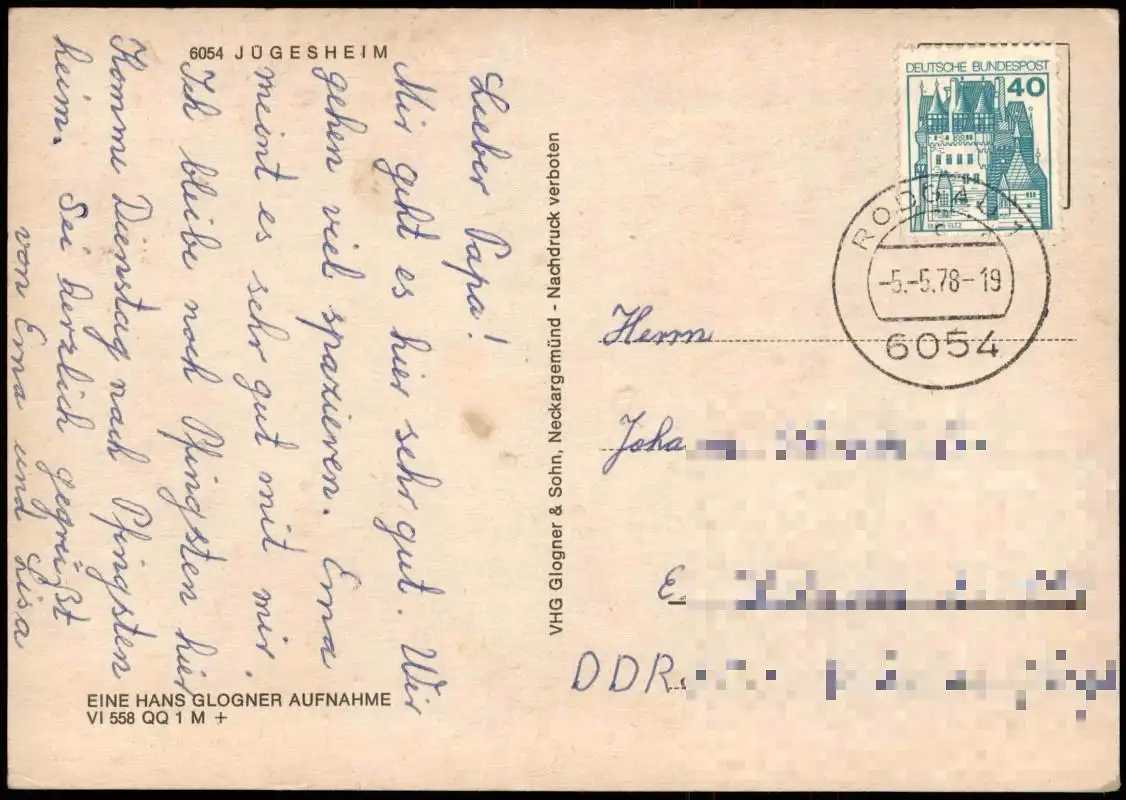 6054 JÜGESHEIM
Lieber Papa!
Mir geht es hier sehr gut. Wir
gehen viel spazieren. Erna
meint es sehr gut mit mir.
Ich bleibe noch Pfingsten hier
Komme Dienstag nach Pfingsten
heim. Sei herzlich gegrüßt
von Erna und Lisa
EINE HANS GLOGNER AUFNAHME
VI 558 QQ 1 M +
VHG Glogner & Sohn, Neckargemünd - Nachdruck verboten
DEUTSCHE BUNDESPOST
40
BURG ELTZ
RODGAU 1
c
-5.-5.78-19
6054
Herrn
Joha
E
DDR